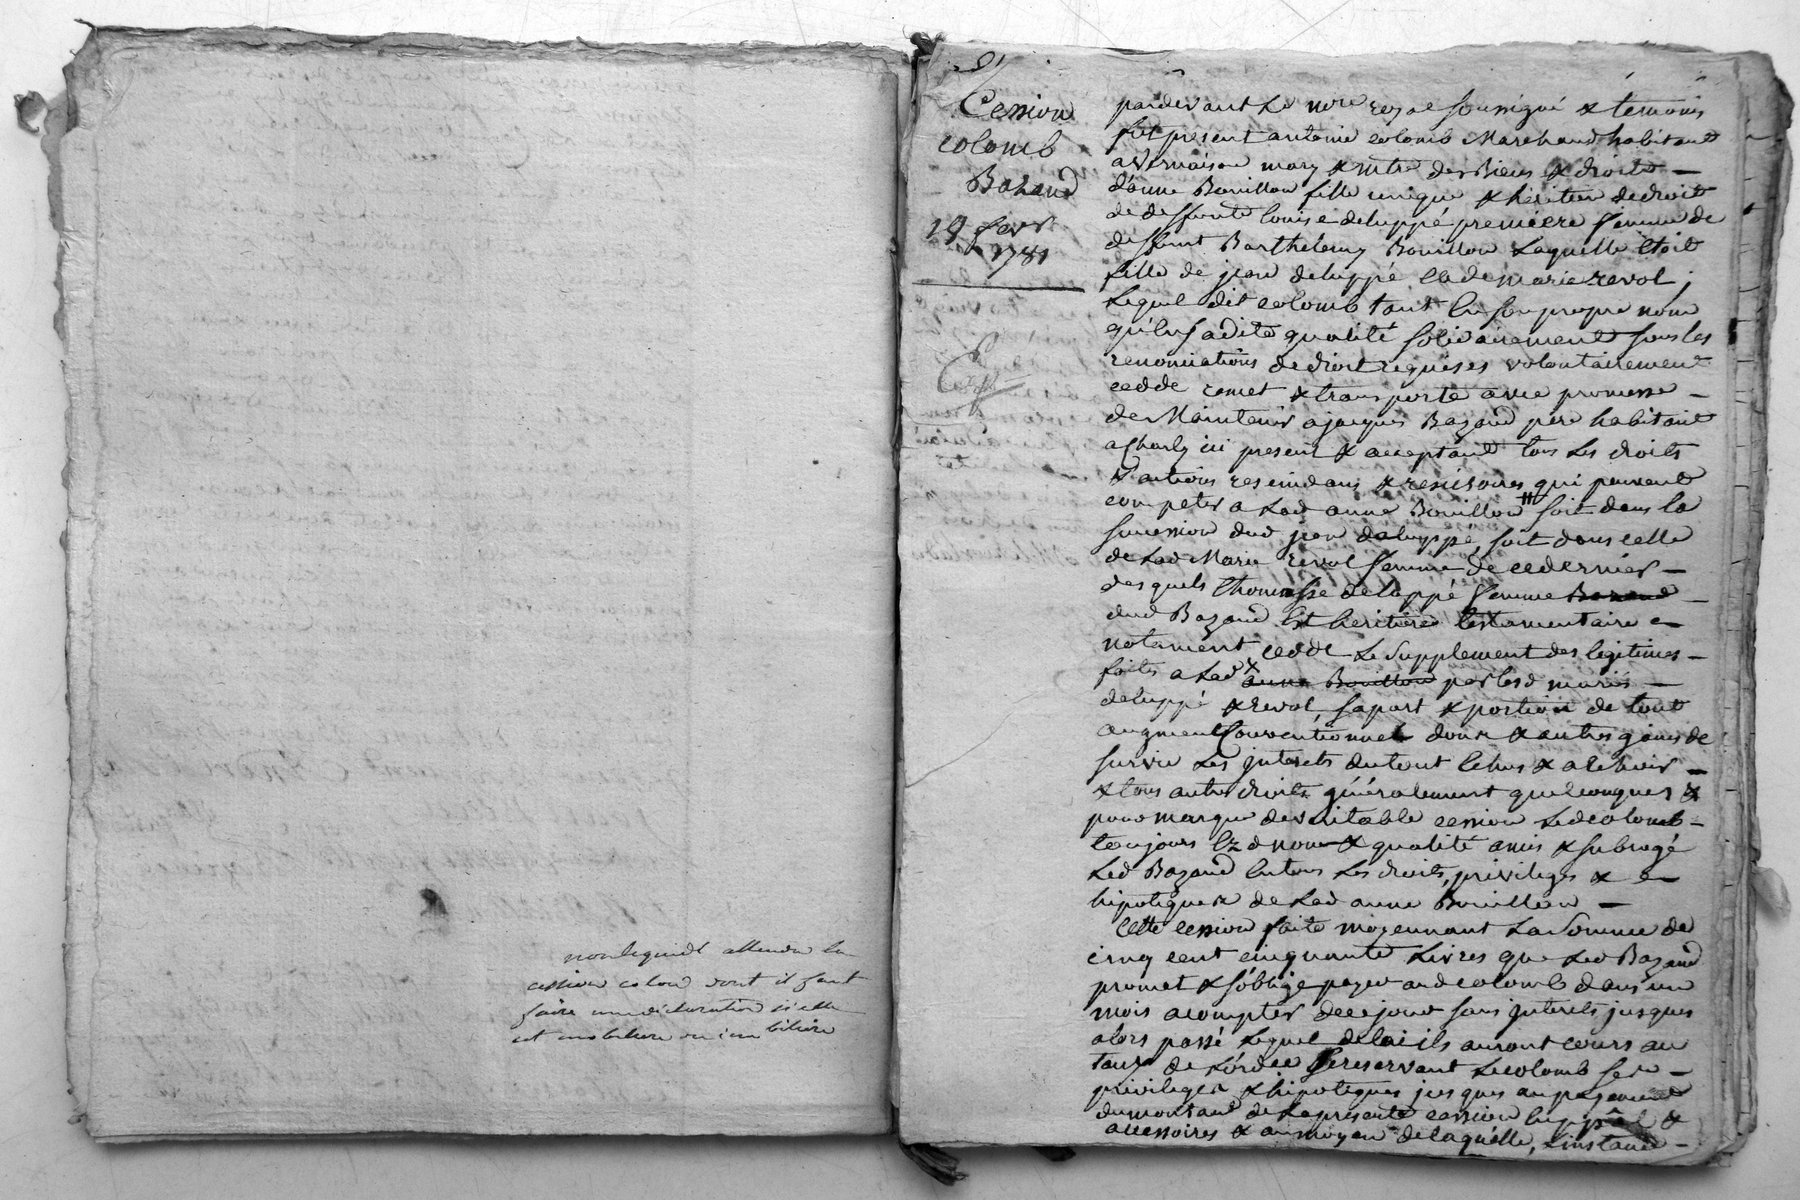 non liquidé attendu la
cession colom dont il faut
faire une déclaration si elle
est mobiliere ou immobiliere
Cession
colomb
Bazand
19 fevr
1781
pardevant Le nore royal soussigné & temoins
fut present antoine colomb Marchand habitant
a Vernaison mary & mtre des Biens & droits
d'anne Bouillon fille unique & heritiere de droit
de deffunte Louise deluppé premiere femme de
deffunt Barthelemy Bouillon Laquelle étoit
fille de jean deluppé et de marie revol ;
Lequel dit colomb tant en son propre nom
qu'en sadite qualité solidairement sous les
renonciations de droit requises volontairement
cedde remet & transporte avec promesse
de Maintenir a jacques Bazand pere habitant
a Charly ici present & acceptant tous Les droits
& actions rescindans & rescisoires qui peuvent
competer a Lad anne Bouillon # soit dans la
succession dud jean deluppé, soit dans celle
de Lad Marie revol femme de ce dernier
desquels Thomasse deluppé femme Bazand
dud Bazand Est heritiere testamentaire
notament cedde Le supplement des legitimes
faites a Lad x anne Bouillon par lesd mariés
deluppé & revol, sa part & portion de tout
augment Conventionnel doux & autres gains de
survie Les interets du tout Echus & a Echoir
& tous autres droits généralement quelconques &
pour marque de veritable cession Led colomb
toujours Ez d noms & qualité a mis & subrogé
Led Bazand En tous Les droits, privileges &
hipoteques de Lad anne Bouillon
Cette cession faite moyennant La Somme de
cinq cent cinquante Livres que Led Bazand
promet & s'oblige payer aud colomb dans un
mois a compter de ce jour sans interets jusques
alors passé Lequel delai ils auront cours au
taux de L'ordce Se reservant Led colomb ses
privileges & hipoteques jusques au payement
du montant de La presente cession En ppal &
accessoires & au moyen de laquelle, L'instance